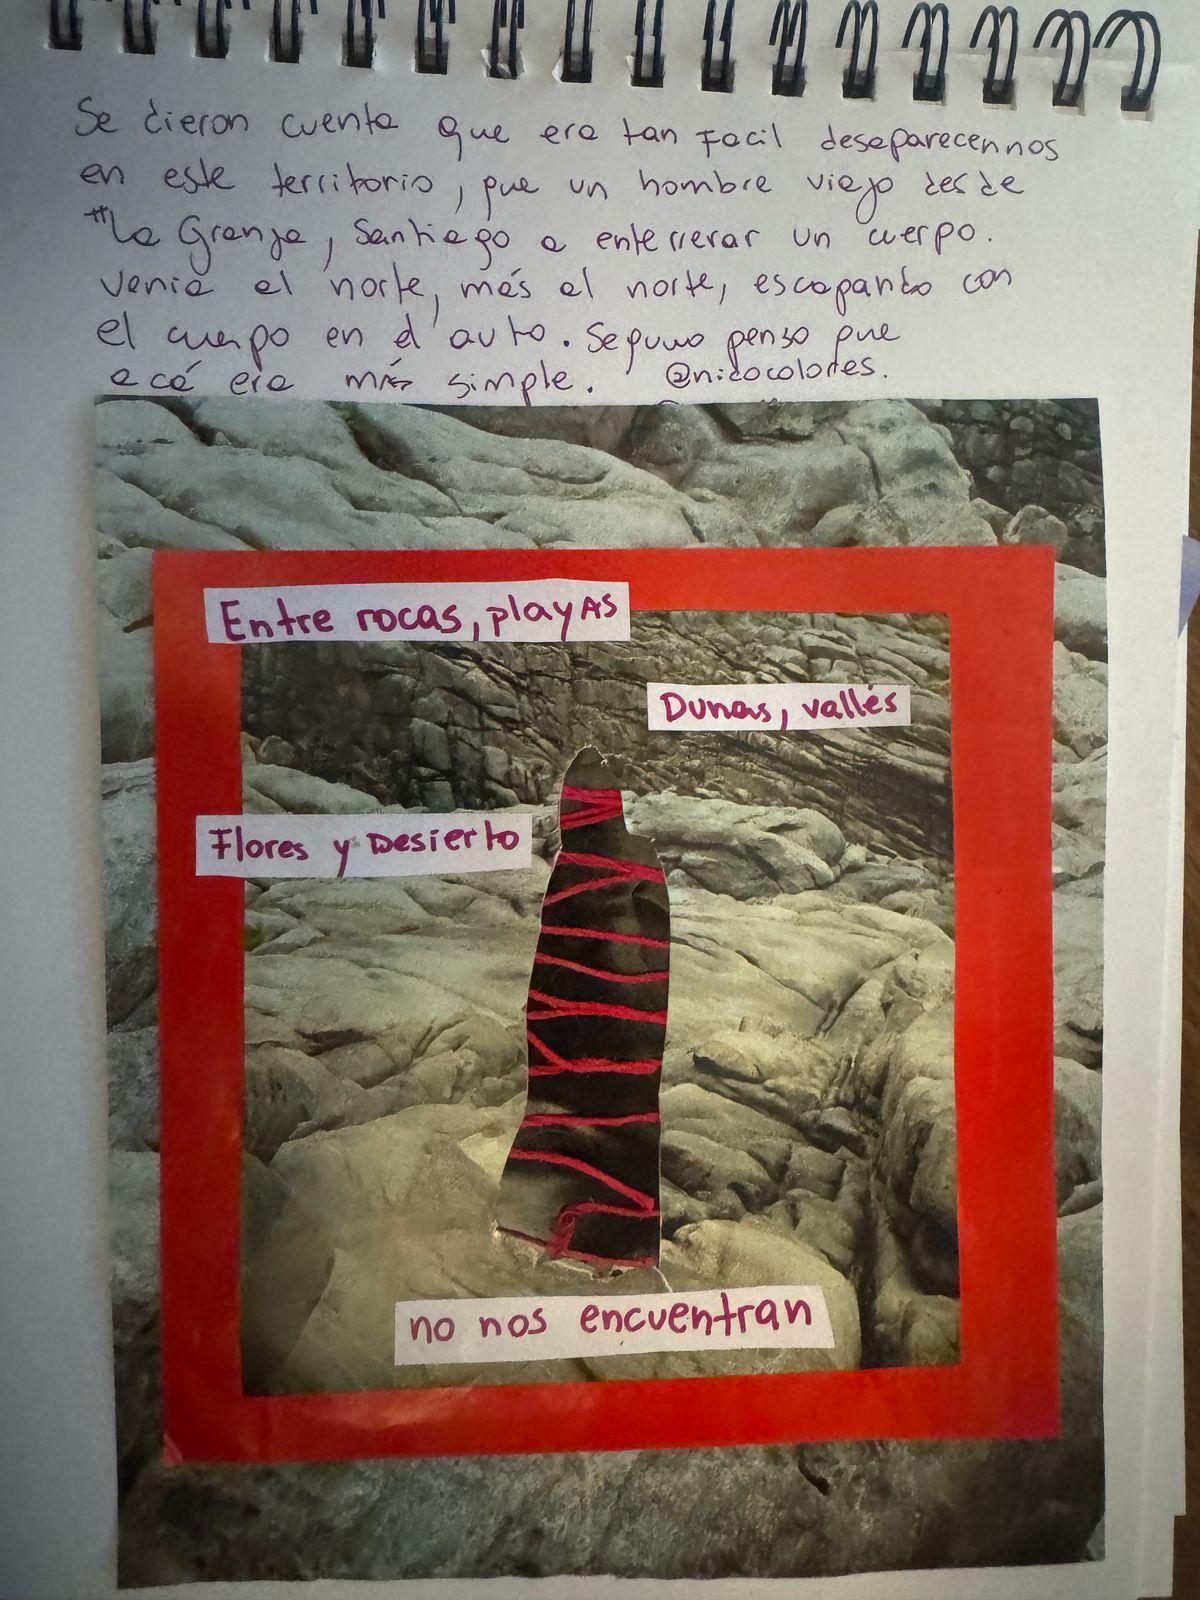 Se dieron cuenta que era tan Facil desaparecernos
en este territorio, que un hombre viajo desde
"La Granja, Santiago a enterrerar un cuerpo.
Venia al norte, más al norte, escapando con
el cuerpo en el auto. Seguro penso que
acá era más simple. @nicocolores.
Entre rocas, playas
Dunas, vallés
Flores y Desierto
no nos encuentran